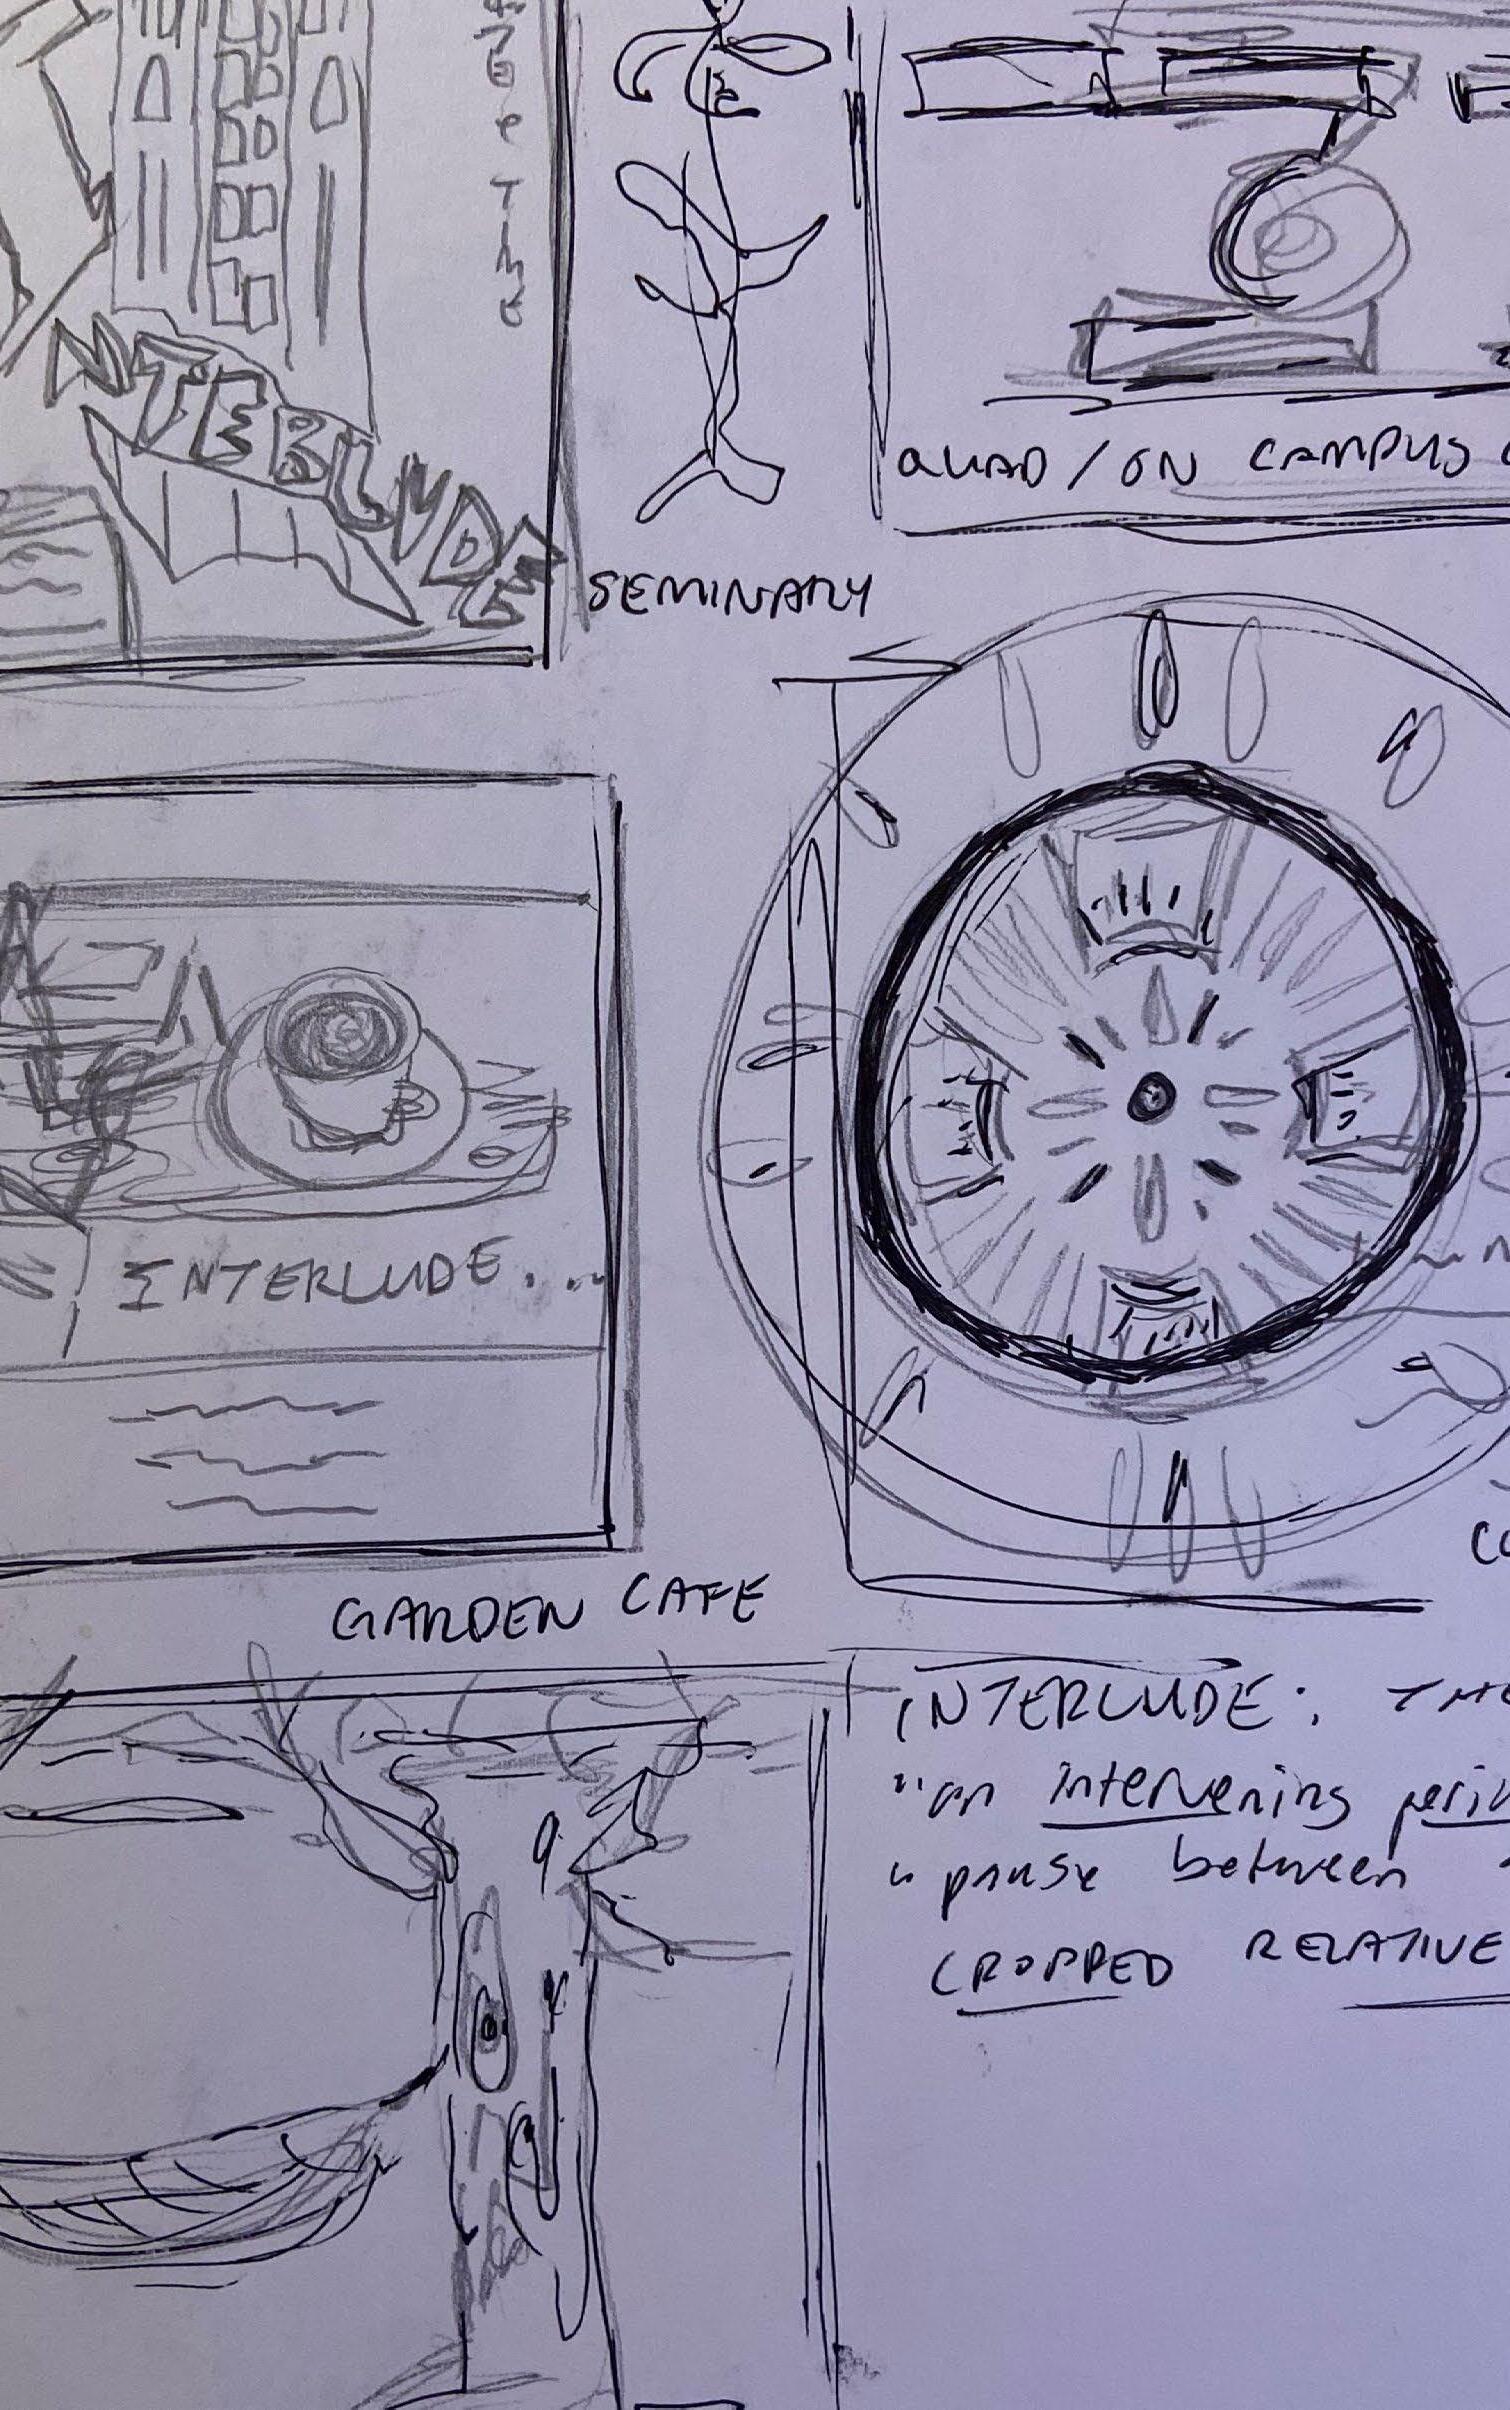 TIME
NTERLUDE
QUAD / ON CAMPUS
SEMINARY
INTERLUDE...
GARDEN CAFE
INTERLUDE: THE
"an intervening
" pause between
CROPPED RELATIVE